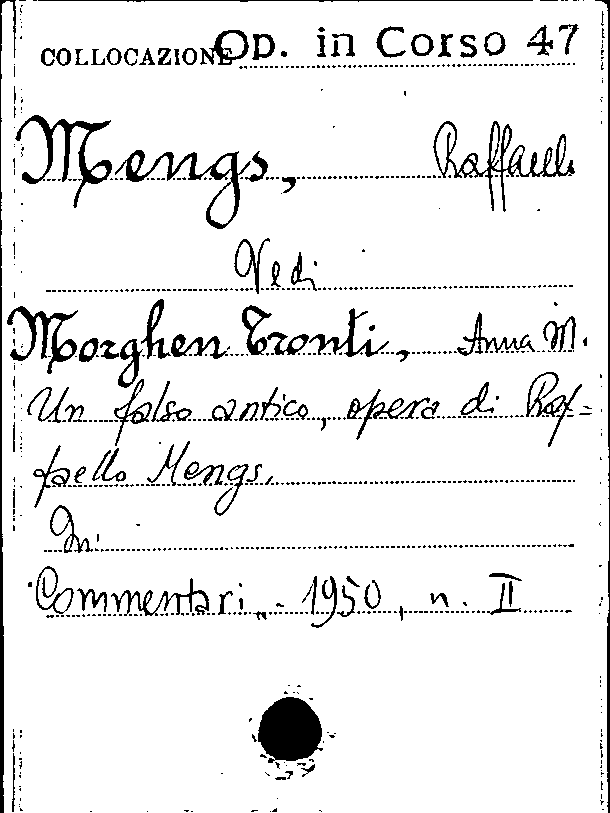 COLLOCAZIONE Op. in Corso 47
Mengs, Raffaele
Vedi
Morghen Tronti, Anna M.
Un falso antico, opera di Raf=
faello Mengs.
In:
Commentari,, - 1950, n. II